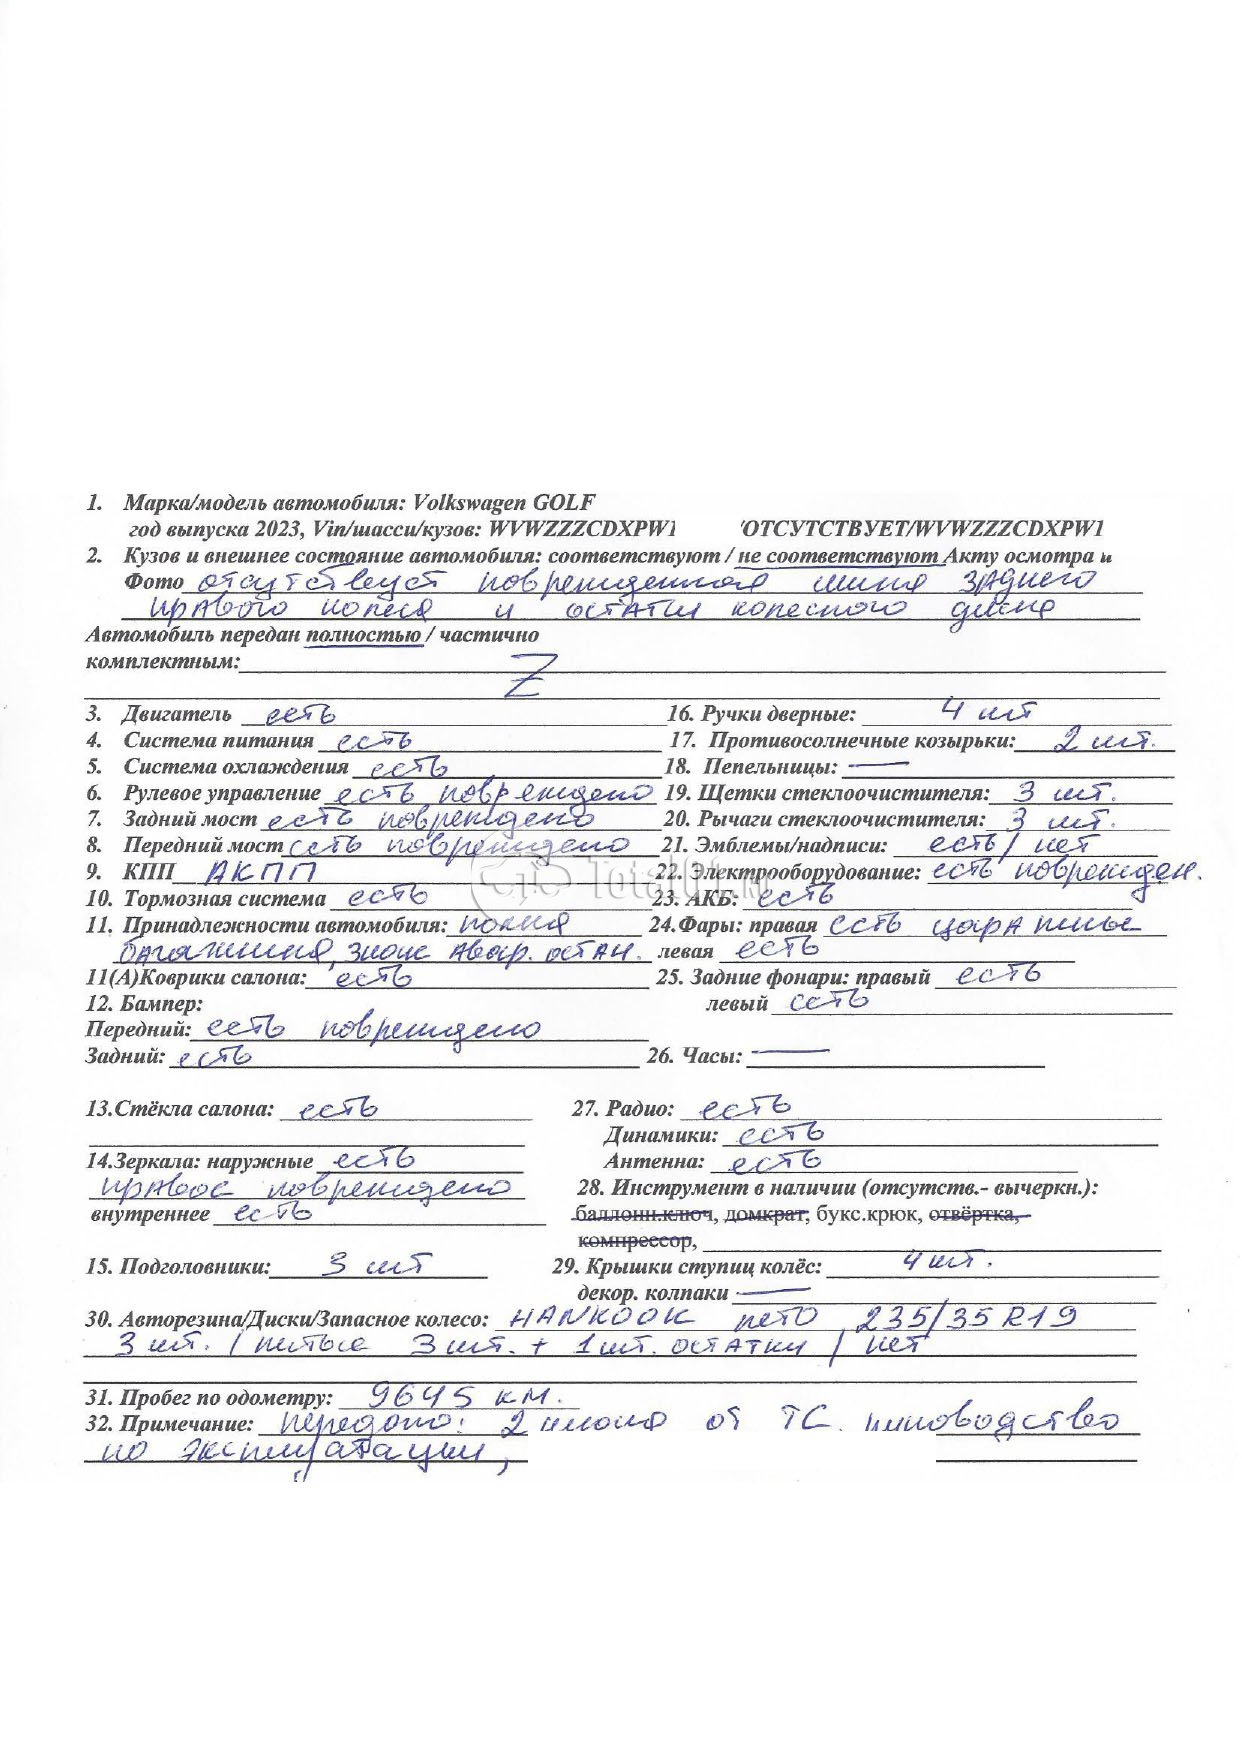 1. Марка/модель автомобиля: Volkswagen GOLF
год выпуска 2023, Vin/шасси/кузов: WVWZZZCDXPW1 ОТСУТСТВУЕТ/WVWZZZCDXPW1
2. Кузов и внешнее состояние автомобиля: соответствуют / не соответствуют Акту осмотра и
Фото отсутствует повреждённая шина заднего
правого колеса и остатки колесного диска
Автомобиль передан полностью / частично
комплектным:
Z
3. Двигатель есть 16. Ручки дверные: 4 шт
4. Система питания есть 17. Противосолнечные козырьки: 2 шт.
5. Система охлаждения есть 18. Пепельницы: —
6. Рулевое управление есть повреждено 19. Щетки стеклоочистителя: 3 шт.
7. Задний мост есть повреждено 20. Рычаги стеклоочистителя: 3 шт.
8. Передний мост есть повреждено 21. Эмблемы/надписи: есть / нет
9. КПП АКПП 22. Электрооборудование: есть поврежден.
TotalOt.ru
10. Тормозная система есть 23. АКБ: есть
11. Принадлежности автомобиля: полка 24.Фары: правая есть царапины
багажника, знак авар. остан. левая есть
11(А)Коврики салона: есть 25. Задние фонари: правый есть
12. Бампер: левый есть
Передний: есть повреждено
Задний: есть 26. Часы: —
13.Стёкла салона: есть 27. Радио: есть
Динамики: есть
14.Зеркала: наружные есть Антенна: есть
правое повреждено 28. Инструмент в наличии (отсутств.- вычеркн.):
внутреннее есть баллонн.ключ, домкрат, букс.крюк, отвёртка,
компрессор,
15. Подголовники: 3 шт 29. Крышки ступиц колёс: 4 шт.
декор. колпаки —
30. Авторезина/Диски/Запасное колесо: HANKOOK лето 235/35 R19
3 шт. / литые 3 шт. + 1 шт. остатки / нет
31. Пробег по одометру: 9645 км.
32. Примечание: передано: 2 ключа от ТС, руководство
по эксплуатации,